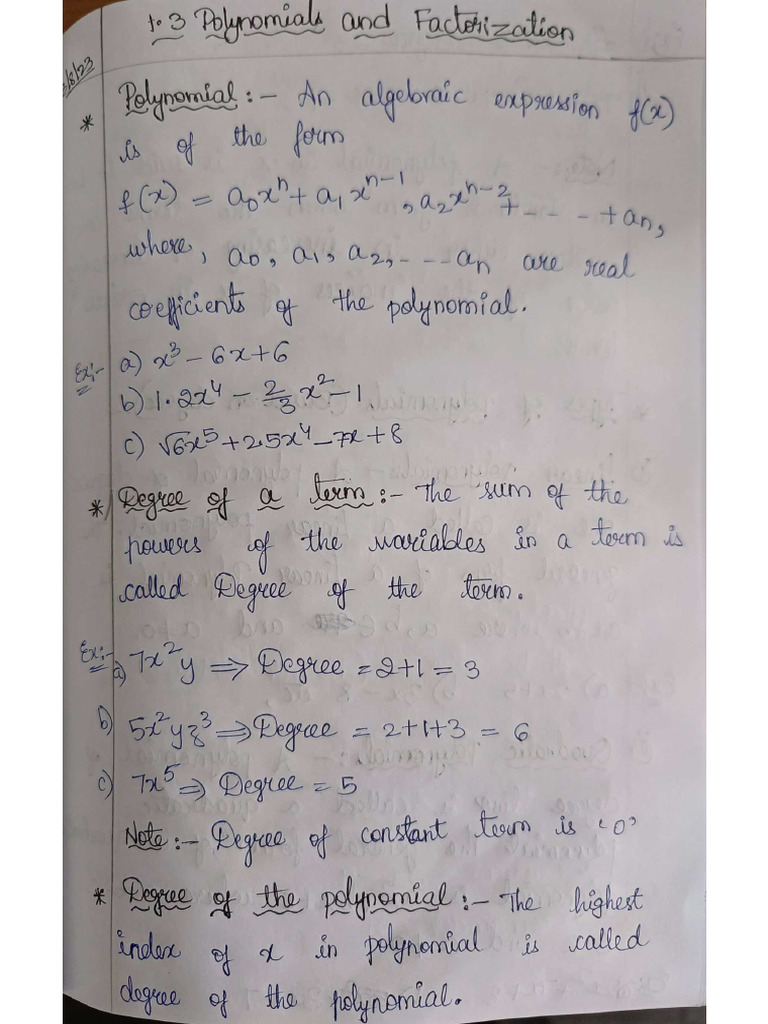 1.3 Polynomials and Factorization
/8/23
* Polynomial :- An algebraic expression f(x)
is of the form
f(x) = a₀xⁿ + a₁xⁿ⁻¹, a₂xⁿ⁻² + - - - + aₙ,
where, a₀, a₁, a₂, - - - aₙ are real
coefficients of the polynomial.
Ex:- a) x³ - 6x + 6
b) 1.2x⁴ - 2/3 x² - 1.
c) √6x⁵ + 2.5x⁴ - 7x + 8
* Degree of a term :- The sum of the
powers of the variables in a term is
called Degree of the term.
Ex:- a) 7x²y ⇒ Degree = 2+1 = 3
b) 5x²yz³ ⇒ Degree = 2+1+3 = 6
c) 7x⁵ ⇒ Degree = 5
Note :- Degree of constant term is '0'
* Degree of the polynomial :- The highest
index of x in polynomial is called
degree of the polynomial.